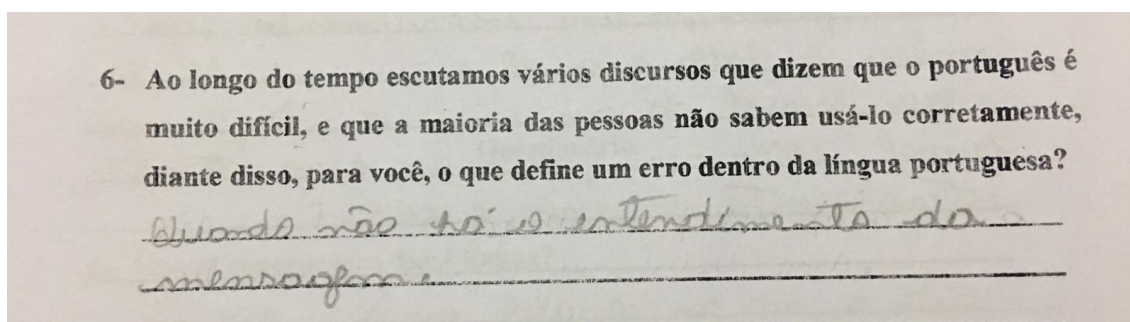 6- Ao longo do tempo escutamos vários discursos que dizem que o português é
muito difícil, e que a maioria das pessoas não sabem usá-lo corretamente,
diante disso, para você, o que define um erro dentro da língua portuguesa?
Quando não há o entendimento da
mensagem.